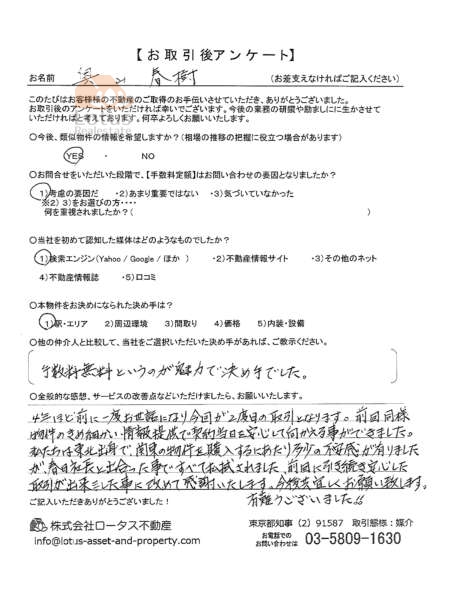 【お取引後アンケート】
お名前 春樹 (お差支えなければご記入ください)
Lotus
Realestate
このたびはお客様様の不動産のご取得のお手伝いさせていただき、ありがとうございました。
お取引後のアンケートをいただければ幸いでございます。今後の業務の研鑽や励ましに生かさせて
いただければと考えております。何卒よろしくお願いいたします。
○今後、類似物件の情報を希望しますか?(相場の推移の把握に役立つ場合があります)
YES ・ NO
○お問合せをいただいた段階で、【手数料定額】はお問い合わせの要因となりましたか?
1)考慮の要因だ ・2)あまり重要ではない ・3)気づいていなかった
※2) 3)をお選びの方・・・・
何を重視されましたか?( )
○当社を初めて認知した媒体はどのようなものでしたか?
1)検索エンジン(Yahoo / Google / ほか ) ・2)不動産情報サイト ・3)その他のネット
4)不動産情報誌 ・5)口コミ
○本物件をお決めになられた決め手は?
1)駅・エリア 2)周辺環境 3)間取り 4)価格 5)内装・設備
○他の仲介人と比較して、当社をご選択いただいた決め手があれば、ご教示ください。
手数料無料というのが魅力で決め手でした。
○全般的な感想、サービスの改善点などいただけましたら、お願いいたします。
4年ほど前に一度お世話になり今回が2度目の取引となります。前回同様
物件のきめ細かい情報提供で契約当日も安心して向かえる事ができました。
私たちは東北出身で、関東の物件を購入するにあたり多少の不安感が有りました
が、春日社長と出会った事ですべて払拭されました。前回に引き続き安心した
取引が出来ました事に改めて感謝いたします。今後共宜しくお願い致します。
有難うございました!!
ご記入いただきありがとうございました!
株式会社ロータス不動産 東京都知事(2)91587 取引態様:媒介
info@lotus-asset-and-property.com お電話での
お問い合わせは 03-5809-1630